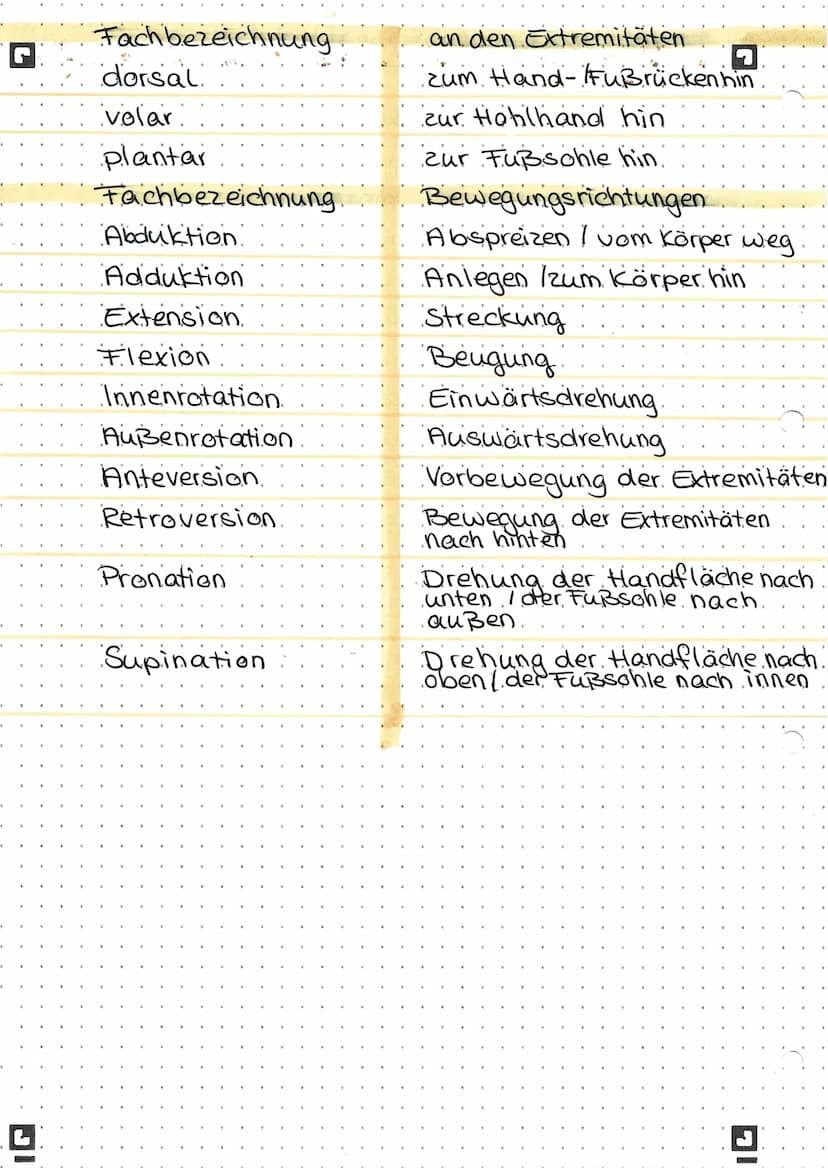 Fachbezeichnung an den Extremitäten
dorsal zum Hand-/Fußrücken hin
volar zur Hohlhand hin
plantar zur Fußsohle hin
Fachbezeichnung Bewegungsrichtungen
Abduktion Abspreizen / vom Körper weg
Adduktion Anlegen / zum Körper hin
Extension Streckung
Flexion Beugung
Innenrotation Einwärtsdrehung
Außenrotation Auswärtsdrehung
Anteversion Vorbewegung der Extremitäten
Retroversion Bewegung der Extremitäten
nach hinten
Pronation Drehung der Handfläche nach
unten / der Fußsohle nach
außen
Supination Drehung der Handfläche nach
oben / der Fußsohle nach innen